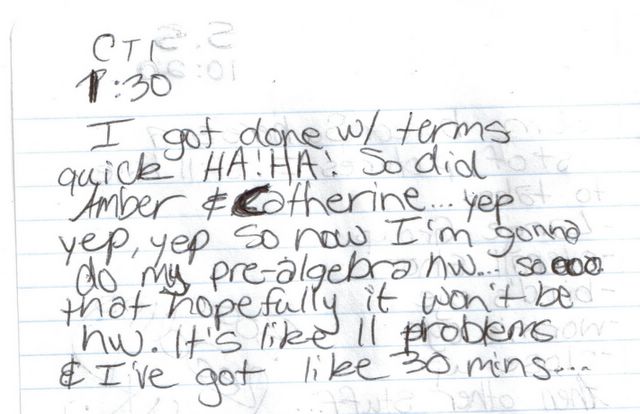 CTI
1:30
I got done w/ terms
quick HA! HA! So did
Amber & Catherine... yep
yep, yep so now I'm gonna
do my pre-algebra hw... soooo
that hopefully it won't be
hw. It's like 11 problems
& I've got like 30 mins...